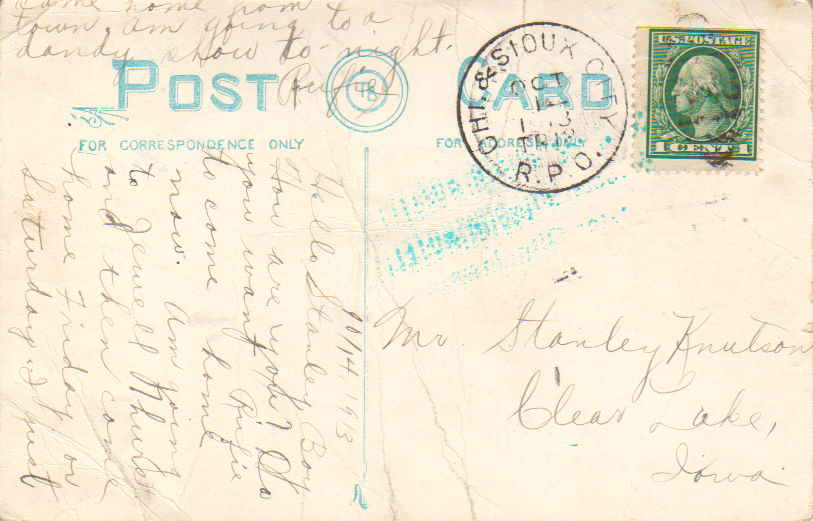 came home from
town, am going to a
dandy show to-night.
Rufie
POST CARD
48
FOR CORRESPONDENCE ONLY
FOR ADDRESS ONLY
CHI. & SIOUX CITY
OCT
14
1913
TR 12
R.P.O.
U.S. POSTAGE
1 CENT 1
10/14, 1913
Hello Stanley Boy
How are you? Do
you want Rufie
to come home
now. Am going
to Jewell Thurs
and then come
home Friday or
Saturday. I just
Mr. Stanley Knutson
Clear Lake,
Iowa